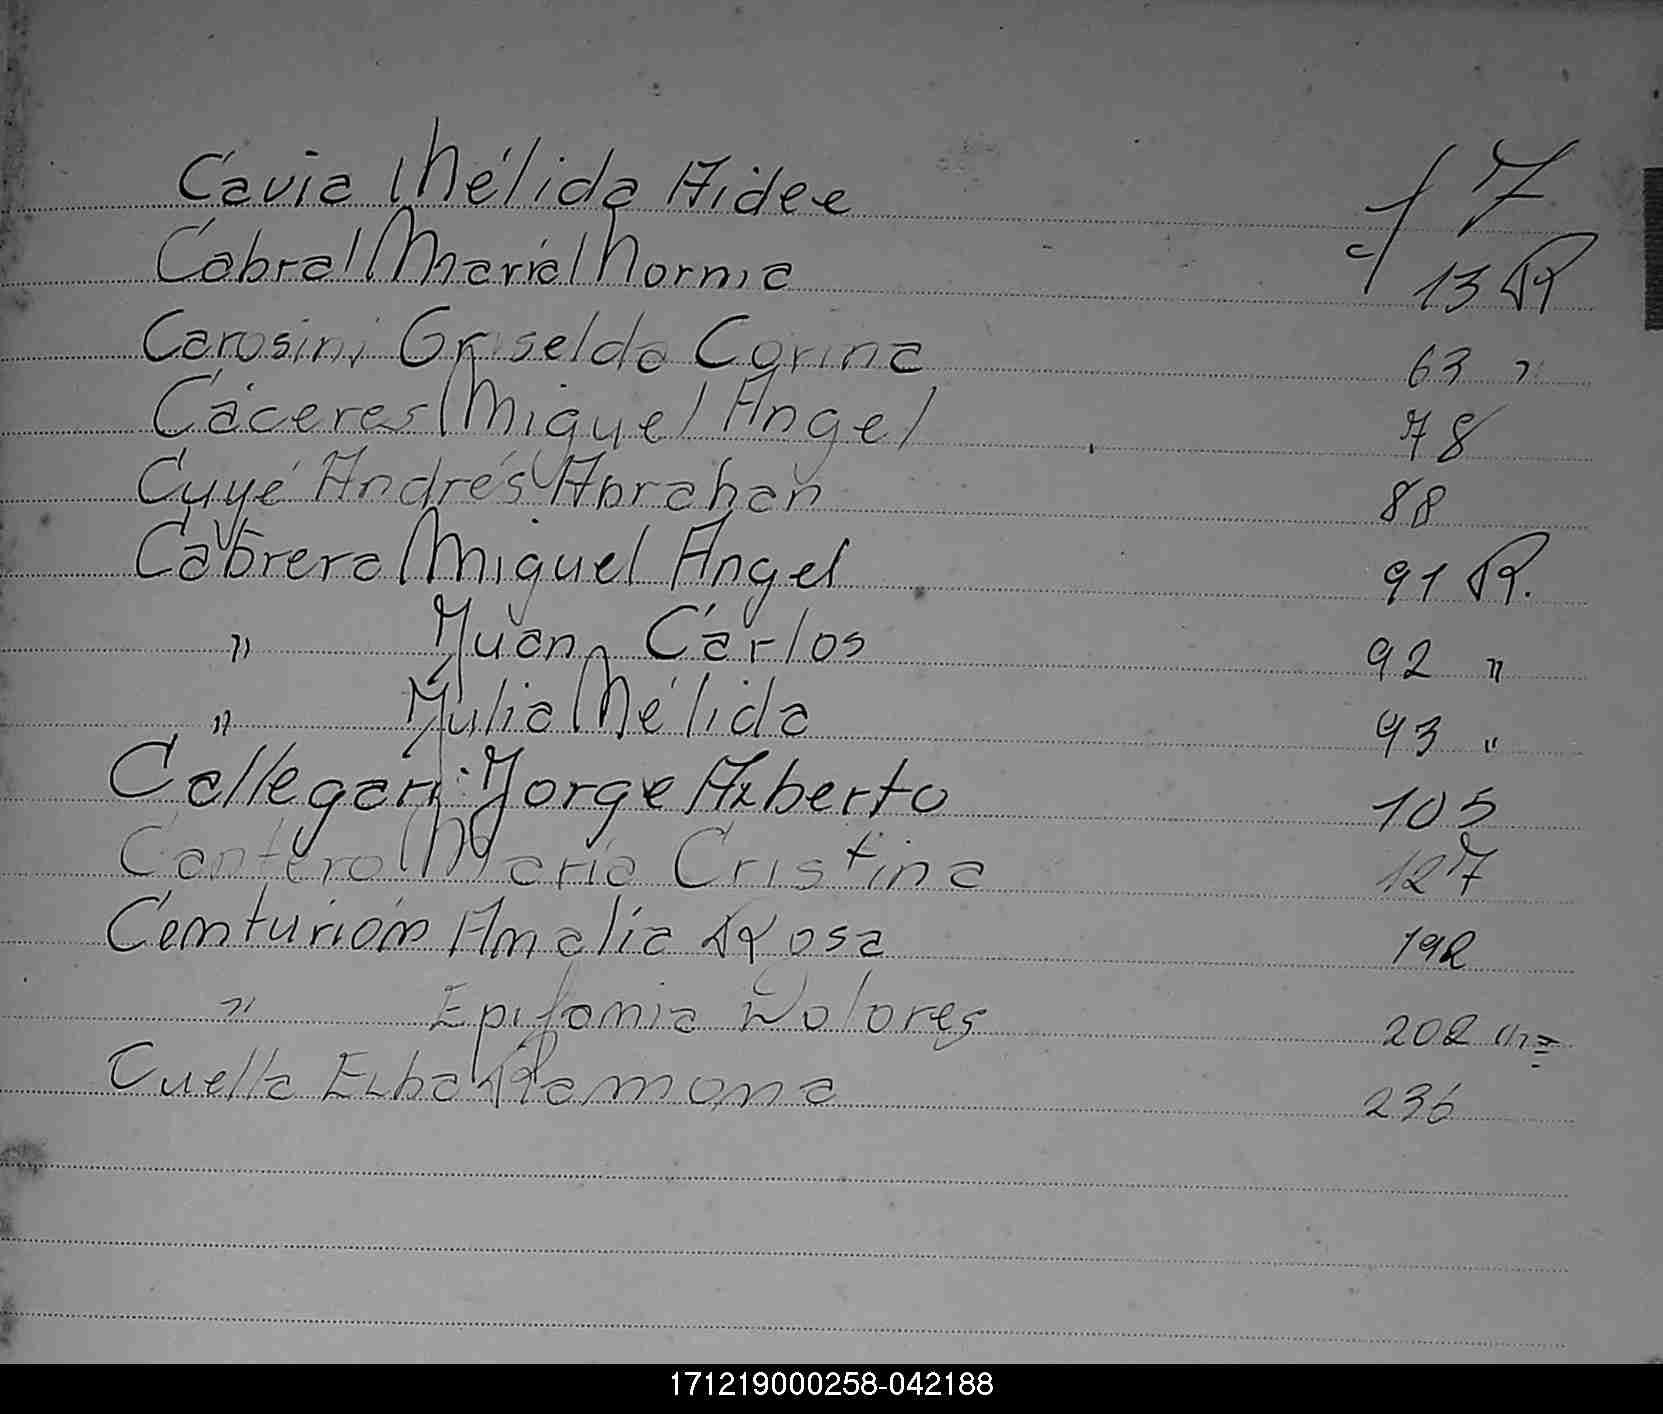 Cavia Nélida Aidee f 7
Cabral María Norma 13 R
Carosini Griselda Corina 63 "
Cáceres Miguel Angel 78
Cuyé Andrés Abrahan 88
Cabrera Miguel Angel 91 R.
" Juan Carlos 92 "
" Julia Nélida 93 "
Callegari Jorge Alberto 105
Cantero María Cristina 127
Centurión Amalia Rosa 192
" Epifania Dolores 202
Cuella Elba Ramona 236
171219000258-042188